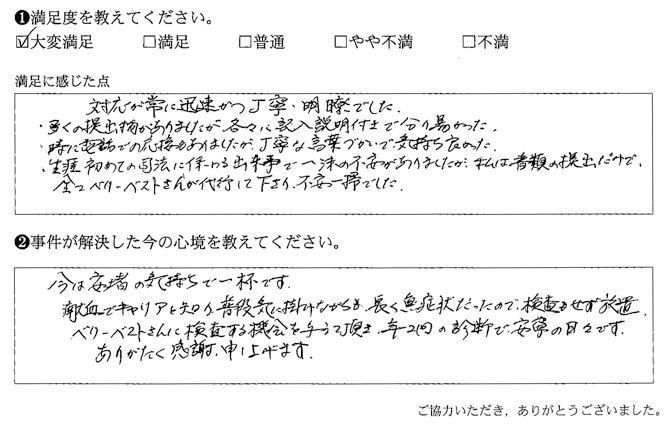 ❶満足度を教えてください。
☑大変満足 □満足 □普通 □やや不満 □不満
満足に感じた点
対応が常に迅速かつ丁寧・明瞭でした.
・多くの提出物がありましたが、各々に記入説明付きで分り易かった.
・時に電話での応接もありましたが、丁寧な言葉づかいで気持ち良かった.
・生涯初めての司法に係わる出来事で一沫の不安がありましたが、私は書類の提出だけで、
全てベリーベストさんが代行して下さり、不安一掃でした.
❷事件が解決した今の心境を教えてください。
今は安堵の気持ちで一杯です.
献血でキャリアと知り、普段気に掛けながらも、長く無症状だったので、検査もせず放置.
ベリーベストさんに検査する機会を与えて頂き、年2回の診断で、安寧の日々です.
ありがたく感謝、申し上げます.
ご協力いただき，ありがとうございました。